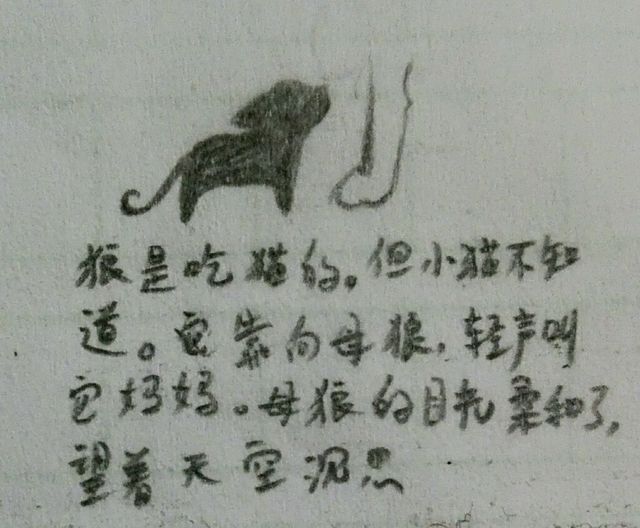 狼是吃猫的。但小猫不知
道。它靠向母狼，轻声叫
它妈妈。母狼的目光柔和了，
望着天空沉思